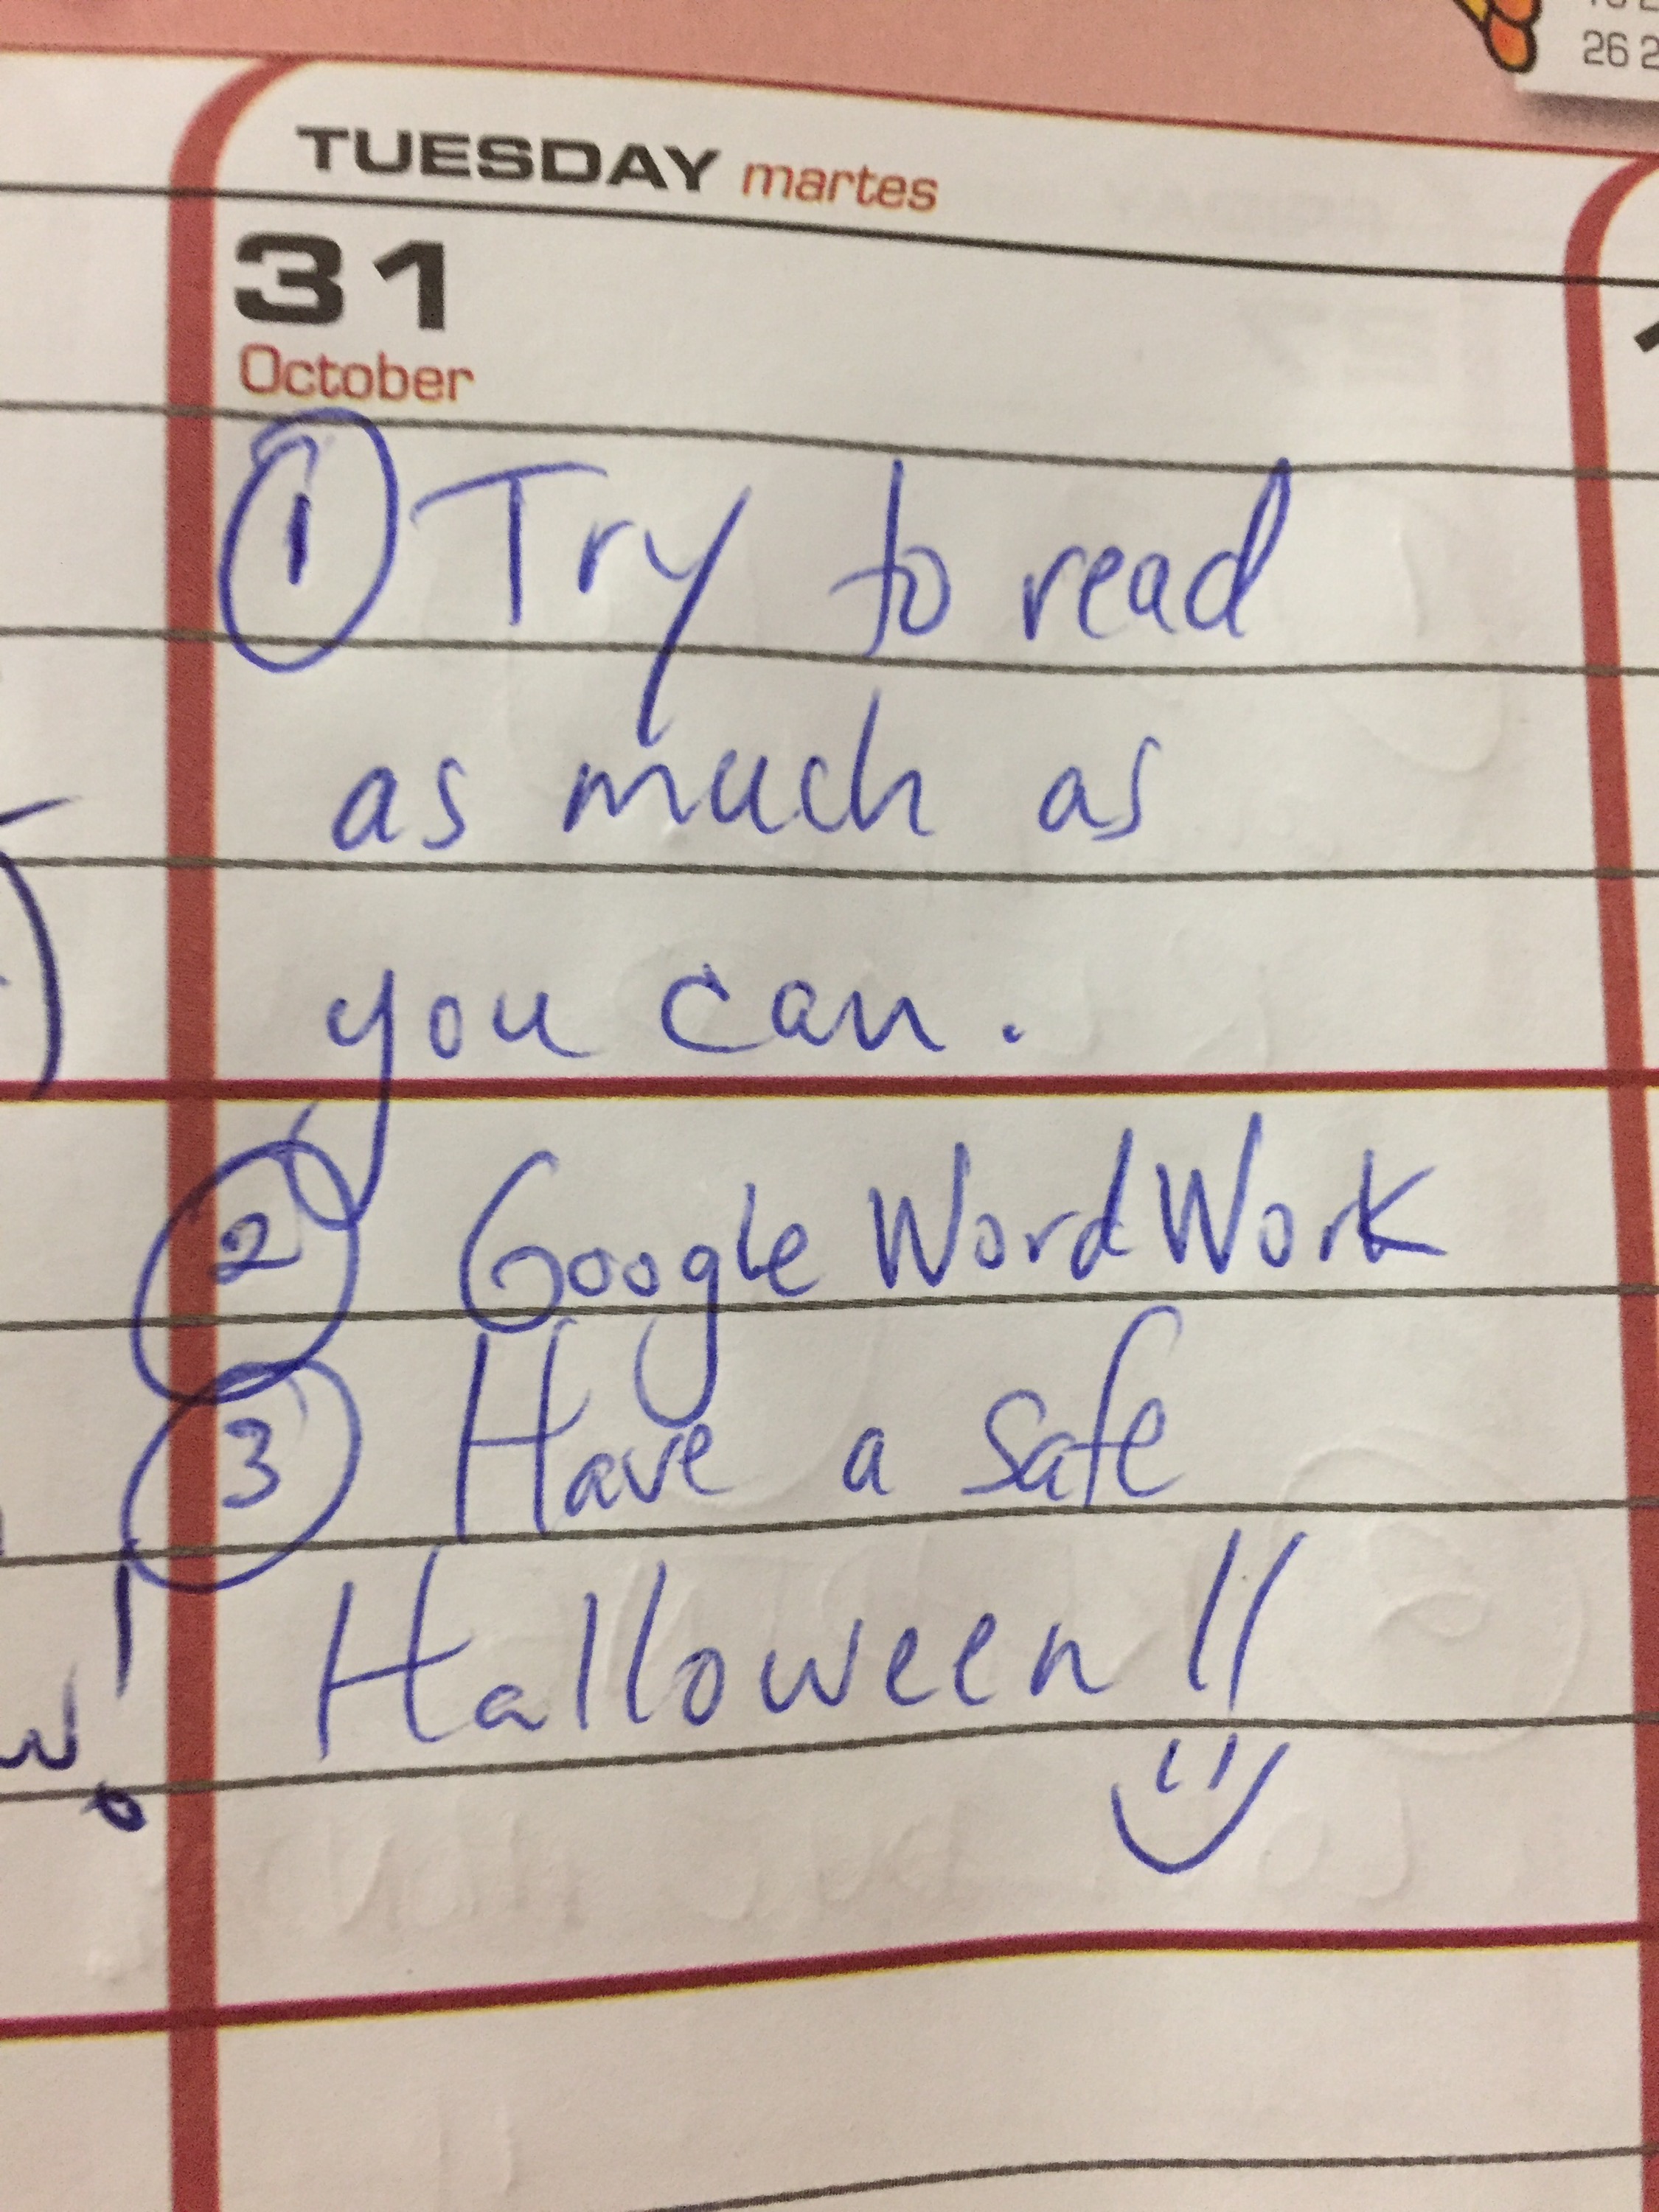 26 2
TUESDAY martes
31
October
① Try to read
as much as
you can.
② Google WordWork
③ Have a safe
Halloween!!